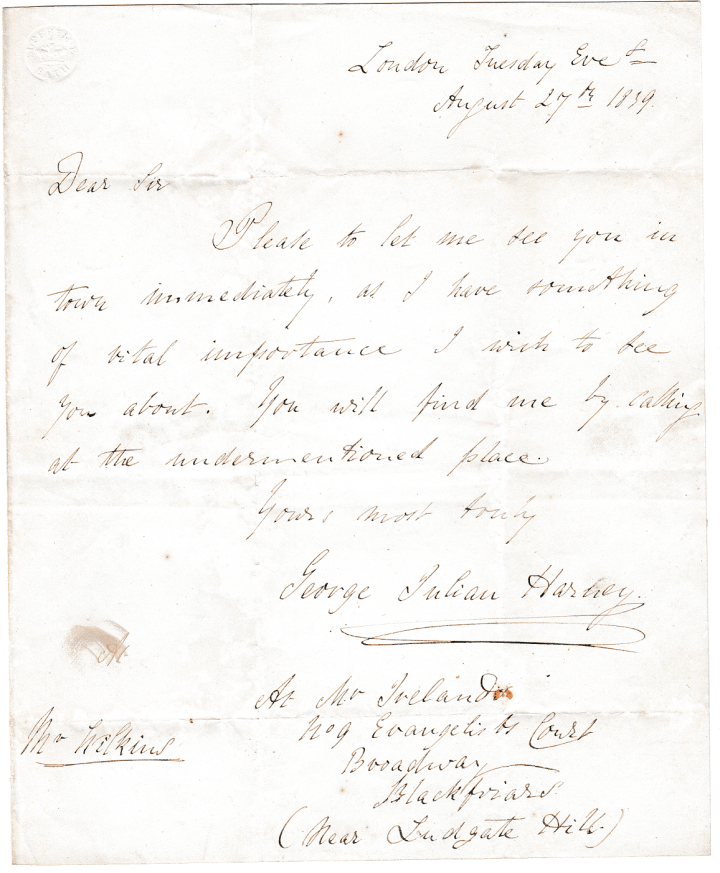 London Tuesday Eve g
August 27th 1839.
Dear Sir
Please to let me see you in
town immediately, as I have something
of vital importance I wish to see
you about. You will find me by calling
at the undermentioned place.
Yours most truly
George Julian Harney.
At
At Mr Irelands
No 9 Evangelists Court
Mr Wilkins
Broadway
Blackfriars
(Near Ludgate Hill.)